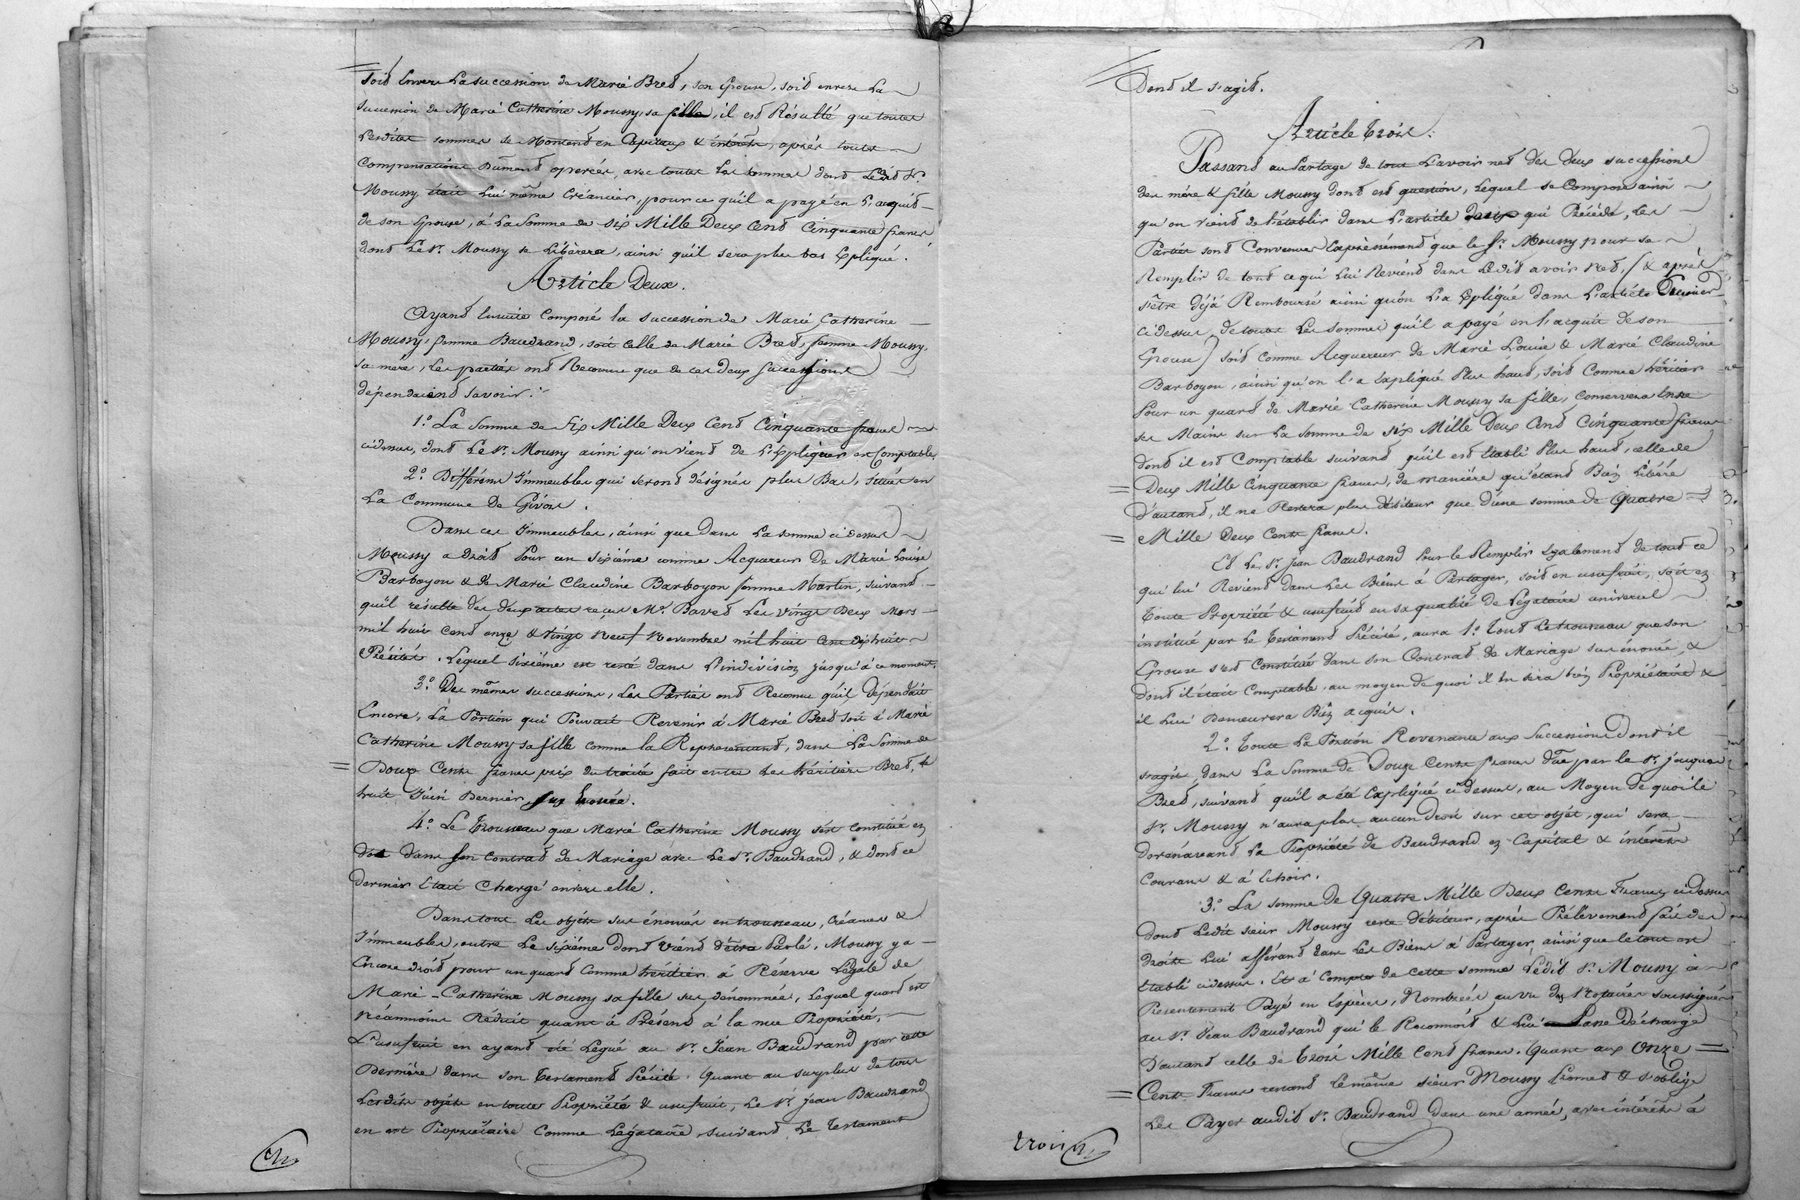 soit Envers La succession de Marie Bred, son Epouse, soit envers La
succession de Marie Catherine Moussy, sa fille, il est Résulté que toutes
Lesdites sommes se Montent en Capitaux & intérêts, après toutes
Compensations dûment operées, avec toutes les sommes dont Ledit Sr
Moussy était Lui même Créancier, pour ce qu'il a payé en L'acquit
de son Epouse, à La Somme de six Mille Deux Cent Cinquante francs
dont Le Sr. Moussy se Libèrera, ainsi qu'il sera plus bas Expliqué.
Article Deux.
Ayant Ensuite Composé la succession de Marie Catherine
Moussy, femme Baudrand, soit celle de Marie Bred, femme Moussy,
sa mère, Les parties ont Reconnu que de ces deux successions
dépendaient savoir :
1.° La Somme de Six Mille Deux Cent Cinquante francs
cidessus, dont Le Sr. Moussy ainsi qu'on vient de L'Expliquer est Comptable
2.° Différens Immeubles qui seront désignés plus Bas, situés en
La Commune de Givors.
Dans ces Immeubles, ainsi que dans La somme ci dessus
Moussy a droit Pour un sixième comme Acquereur de Marie Louise
Barboyon & de Marie Claudine Barboyon femme Martin, suivant
qu'il résulte des deux actes reçus Me. Bavet Les vingt Deux Mars
mil huit cent onze & vingt Neuf Novembre mil huit cent dix huit
Précités. Lequel sixième est resté dans L'indivision jusqu'à ce moment.
3.° Des mêmes successions, Les Parties ont Reconnu qu'il dépendait
Encore, La Portion qui Pouvait Revenir à Marie Bred soit à Marie
Catherine Moussy sa fille comme la Représentant, dans La Somme de
Douze Cents francs prix du traité fait entre Les héritiers Bred, le
huit Juin Dernier, sus Enoncé.
4.° Le Trousseau que Marie Catherine Moussy s'est constitué en
dot dans son contrat de Mariage avec Le Sr. Baudrand, & dont ce
dernier Etait Chargé envers elle.
Dans tous Les objets sus énoncés en trousseau, Créances &
Immeubles, outre Le sixième dont vient d'être Parlé, Moussy y a
Encore droit pour un quart comme héritier à Réserve Légale de
Marie-Catherine Moussy sa fille sus dénommée, Lequel quart est
néanmoins Réduit quant à Présent à la nue Propriété,
L'usufruit en ayant été Légué au Sr. Jean Baudrand par cette
Dernière dans son Testament Précité. Quant au surplus de tous
Lesdits objets en toute Propriété & usufruit, Le Sr. Jean Baudrand
en est Propriétaire Comme Légataire, suivant Le testament
Dont il s'agit.
Article Trois.
Passant au Partage de tout L'avoir net des deux successions
des mère & fille Moussy dont est question, Lequel se Compose ainsi
qu'on vient de L'établir dans L'article deux qui Précède, Les
Parties sont Convenues Expressément que le Sr. Moussy pour se
Remplir de tout ce qui Lui Revient dans Ledit avoir net, (& après
s'être déjà Remboursé ainsi qu'on L'a Expliqué dans L'article Premier
cidessus, de toutes Les Sommes qu'il a payé en L'acquit de son
Epouse) soit comme Acquereur de Marie Louise & Marie Claudine
Barboyon, ainsi qu'on L'a Expliqué Plus haut, soit Comme héritier
Pour un quart de Marie Catherine Moussy sa fille, Conservera Entre
ses Mains sur La Somme de Six Mille Deux Cent Cinquante francs
dont il est Comptable suivant qu'il est Etabli Plus haut, celle de
Deux Mille Cinquante francs, de manière qu'étant Bien Libéré
D'autant, il ne Restera plus débiteur que d'une somme de Quatre
Mille Deux Cents francs.
Et Le Sr. Jean Baudrand Pour le Remplir Egalement de tout ce
qui lui Revient dans Les Biens à Partager, soit en usufruit, soit en
toute Propriété & usufruit en sa qualité de Légataire universel
institué par Le Testament Précité, aura 1.° Tout Le trousseau que son
Epouse s'est Constitué dans son Contrat de Mariage sus énoncé, &
dont il était Comptable, au moyen de quoi il en sera bien Propriétaire &
il Lui Demeurera Bien acquis.
2.° Toute La Portion Revenante aux Successions dont il
s'agit, dans La Somme de Douze Cents francs Due par le Sr. Jacques
Bred, suivant qu'il a été Expliqué cidessus, au Moyen de quoi le
Sr. Moussy n'aura plus aucun Droit sur cet objet, qui sera
dorénavant La Propriété de Baudrand en Capital & intérêts
Courans & à Echoir.
3.° La somme de Quatre Mille Deux Cents Francs cidessus
dont Ledit sieur Moussy reste débiteur, après Prélèvement fait des
droits Lui afférant dans Les Biens à Partager, ainsi que le tout est
Etabli cidessus. Et à Compte de cette somme Ledit Sr. Moussy a
Présentement Payé en Espèces, Nombrées au vu des Notaires soussignés
au Sr. Jean Baudrand qui le Reconnait & Lui Passe Décharge
D'autant celle de Trois Mille Cent francs. Quant aux Onze
Cents Francs restant le même sieur Moussy Promet & s'oblige
Les Payer audit Sr. Baudrand dans une année, avec intérêts à
trois